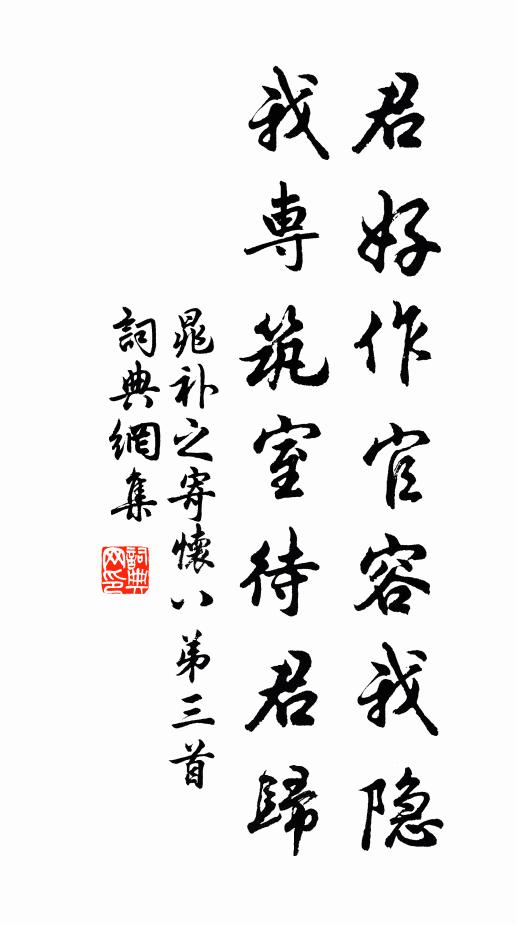 君好作官容我隐
我専筑室待君歸
晁补之寄懷八弟三首
詞典網集
詞典网印